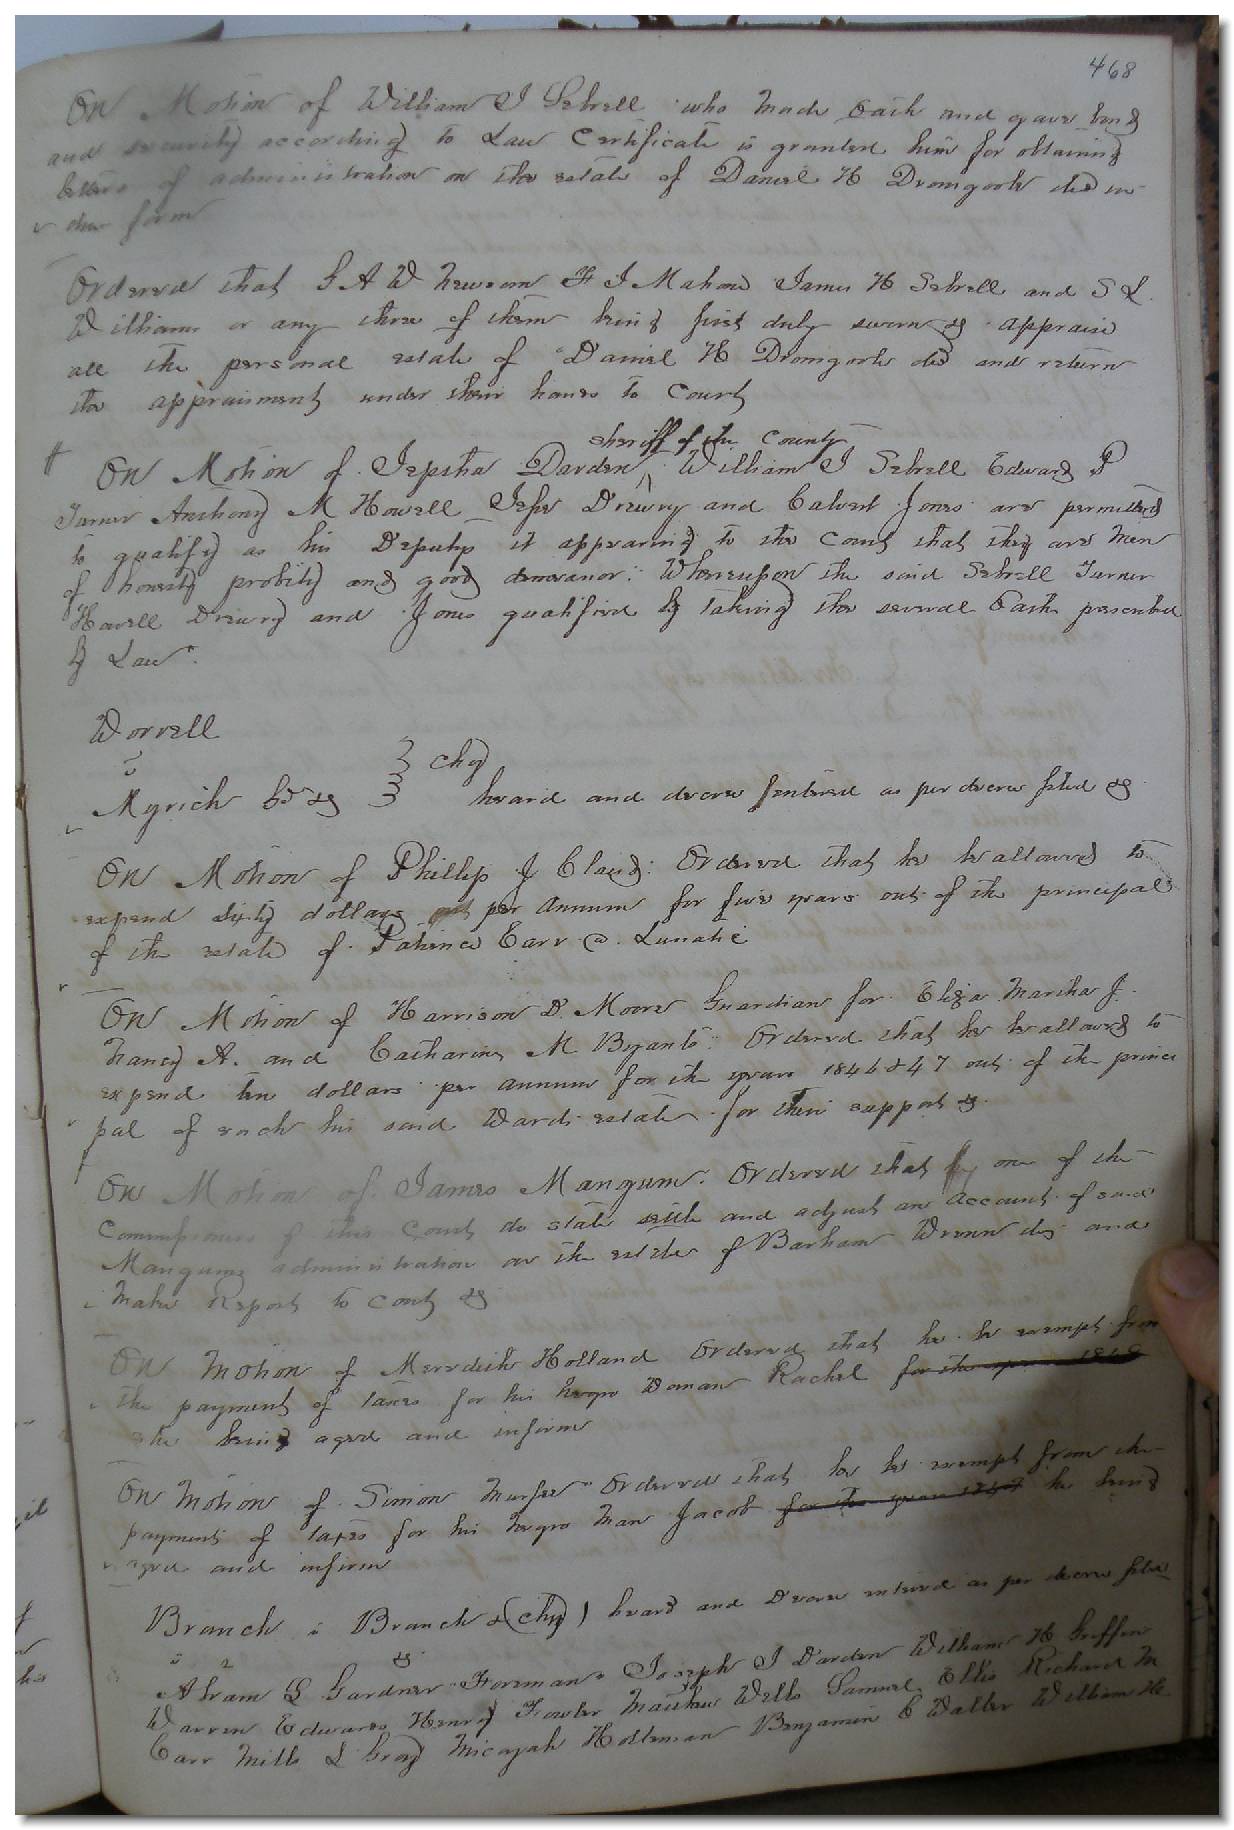 468
On Motion of William J Sebrell who made Oath and gave bond
and security according to Law Certificate is granted him for obtaining
letters of administration on the estate of Daniel H Dromgoole decd in
due form
Ordered that G A W Newsom F J Mahone James H Sebrell and S L
Williams or any three of them being first duly sworn &c appraise
all the personal estate of Daniel H Dromgoole decd and return
the appraisment under their hands to Court
sheriff of the County
On Motion of Jepstha Darden William J Sebrell Edward P
Turner Anthony M Howell Drewry and Calvert Jones are permitted
to qualify as his Deputys it appearing to the Court that they are Men
of honesty probity and good demeanor: Whereupon the said Sebrell Turner
Howell Drewry and Jones qualified by taking the several Oaths prescribed
by Law
Worrell
v } chy
Myrick &c heard and decree entered as per decree filed &c
On Motion of Phillip J Claud: Ordered that he be allowed to
expend Sixty dollars per annum for five years out of the principal
of the estate of Patience Carr a Lunatic
On Motion of Harrison D. Moore Guardian for Eliza Martha J.
Nancy A. and Catharine M Bryants: Ordered that he be allowed to
expend ten dollars per annum for the years 1846 & 47 out of the princi
pal of each his said Wards estate for their support &c
On Motion of James Mangum: Ordered that one of the
Commissioners of this Court do state settle and adjust an account of said
Mangums administration on the estate of Barham Wrenn decd and
Make Report to Court &c
On Motion of Meredith Holland Ordered that he be exempt from
the payment of taxes for his negro Woman Rachel for the year 1848
she being aged and infirm
On Motion of Simion Murfee Ordered that he be exempt from the
payment of taxes for his negro Man Jacob for the year he being
aged and infirm
Branch v Branch &c (chy) heard and Decree entered as per decree filed
Abram L Gardner Foreman Joseph J Darden William H Griffin
Warren Edwards Henry Fowler Matthew Wells Samuel Ellis Richard M
Carr Mills L Gray Micajah Holleman Benjamin C Waller William H